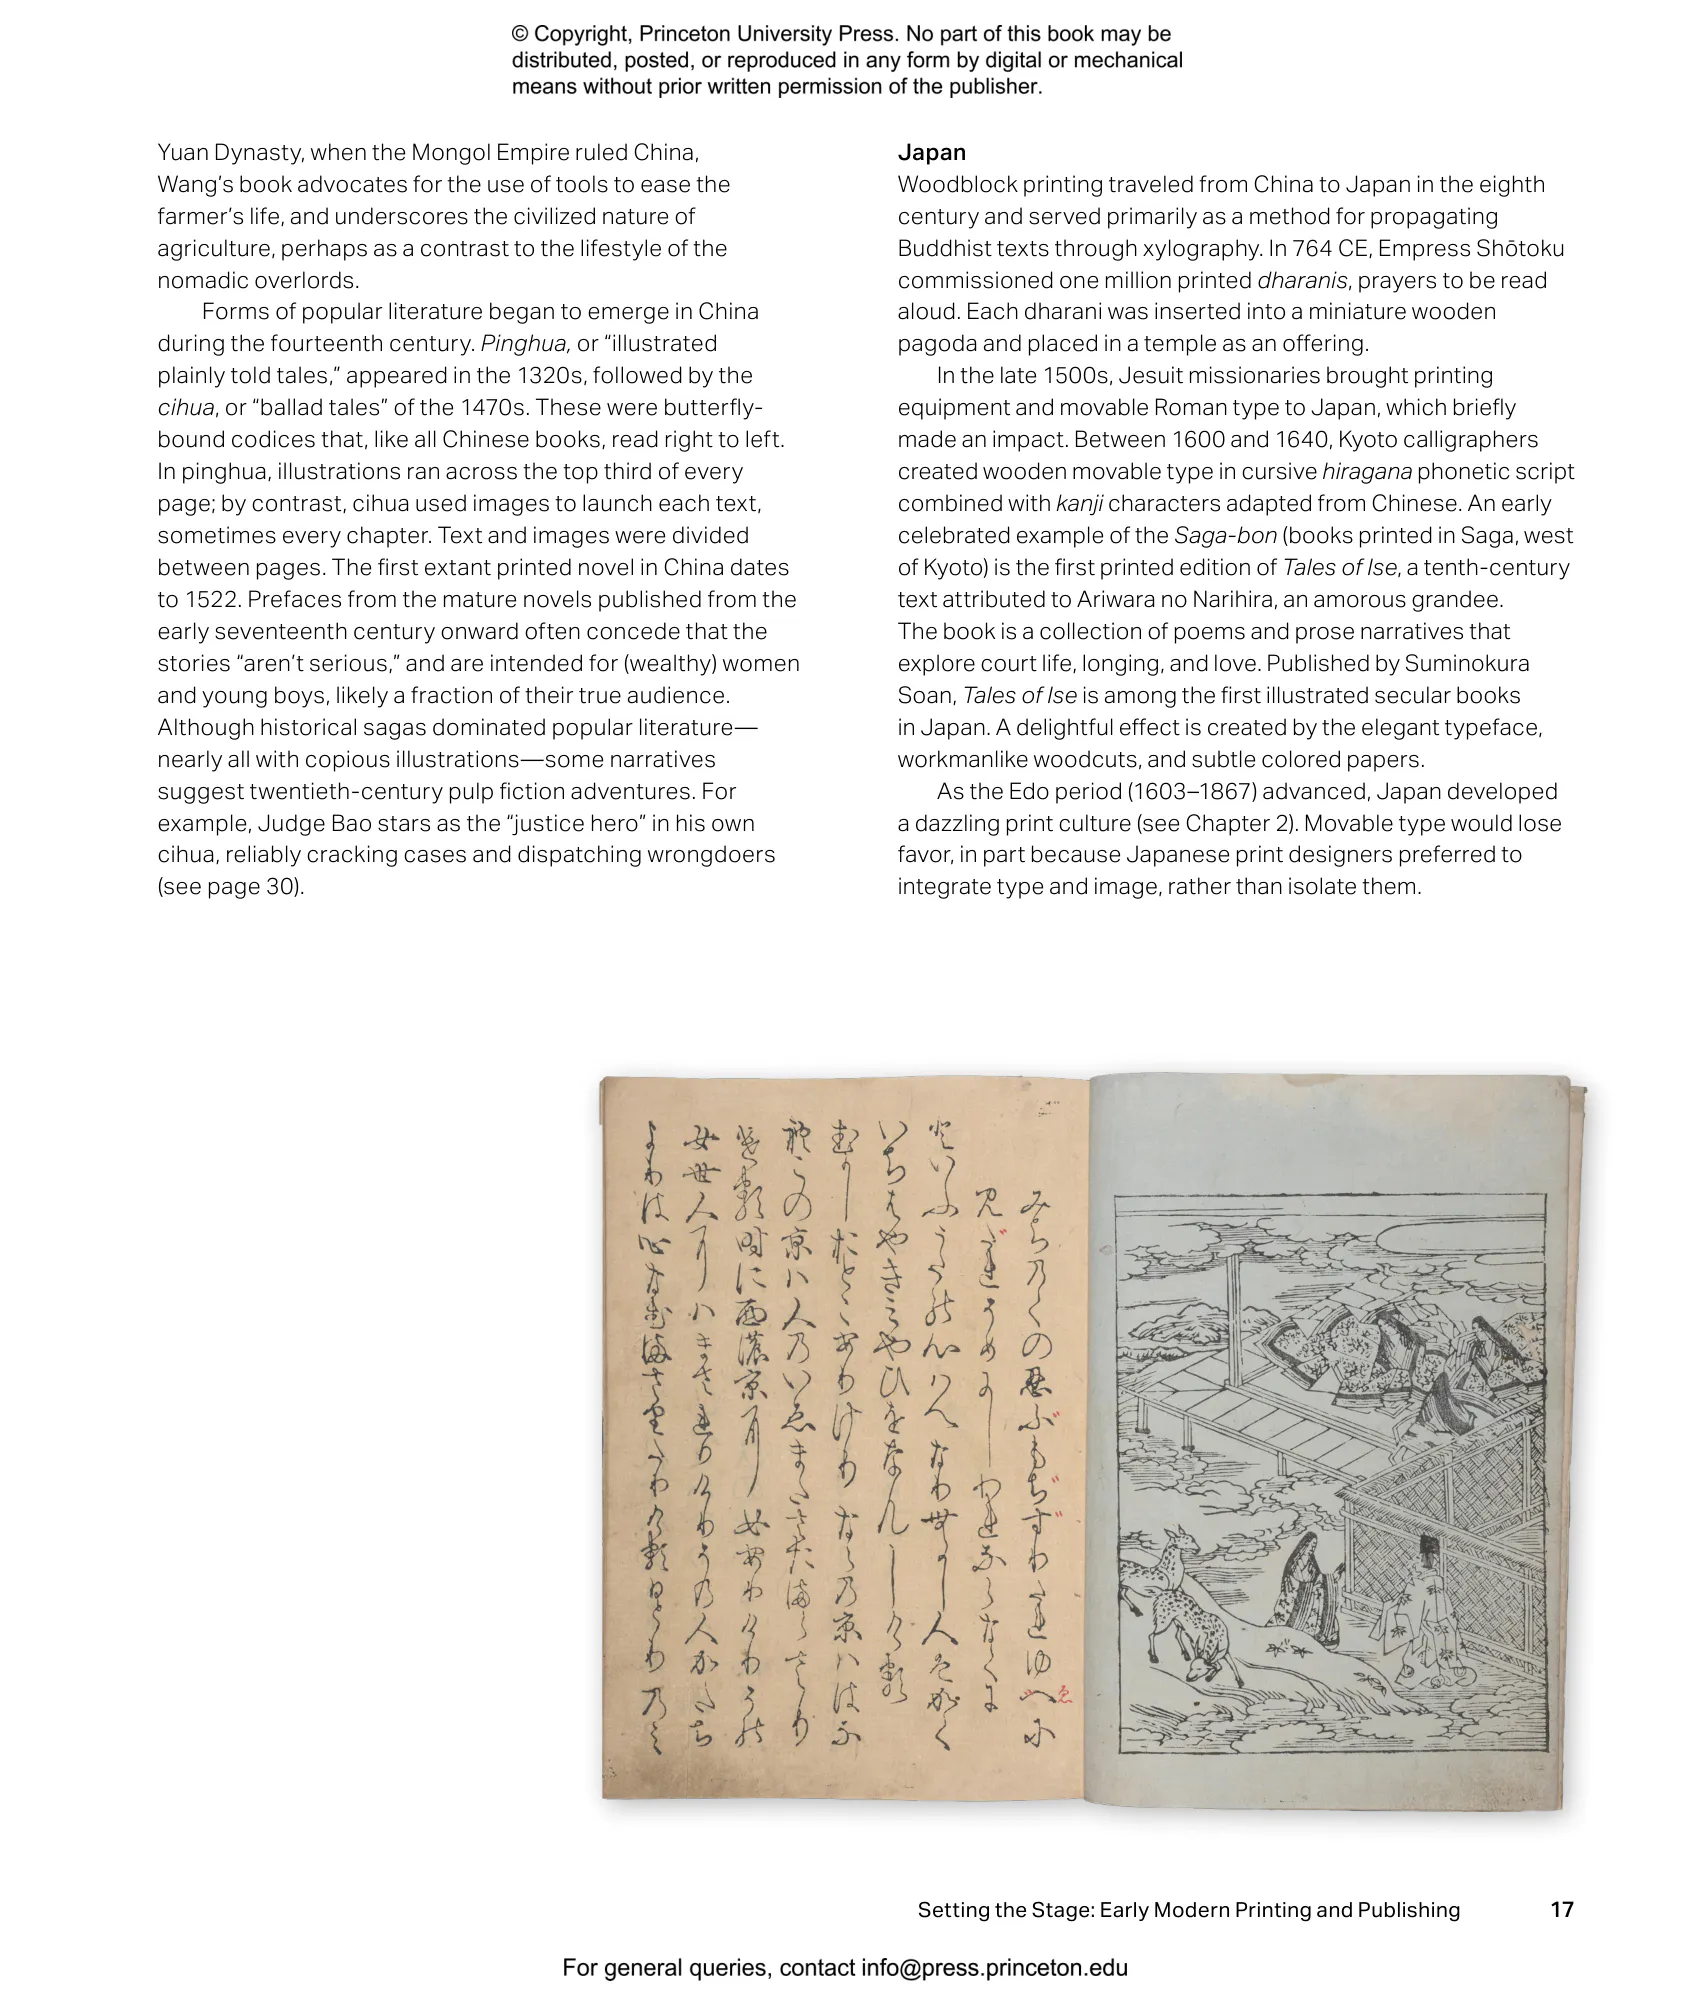 © Copyright, Princeton University Press. No part of this book may be
distributed, posted, or reproduced in any form by digital or mechanical
means without prior written permission of the publisher.
Yuan Dynasty, when the Mongol Empire ruled China,
Wang’s book advocates for the use of tools to ease the
farmer’s life, and underscores the civilized nature of
agriculture, perhaps as a contrast to the lifestyle of the
nomadic overlords.
Forms of popular literature began to emerge in China
during the fourteenth century. Pinghua, or “illustrated
plainly told tales,” appeared in the 1320s, followed by the
cihua, or “ballad tales” of the 1470s. These were butterfly-
bound codices that, like all Chinese books, read right to left.
In pinghua, illustrations ran across the top third of every
page; by contrast, cihua used images to launch each text,
sometimes every chapter. Text and images were divided
between pages. The first extant printed novel in China dates
to 1522. Prefaces from the mature novels published from the
early seventeenth century onward often concede that the
stories “aren’t serious,” and are intended for (wealthy) women
and young boys, likely a fraction of their true audience.
Although historical sagas dominated popular literature—
nearly all with copious illustrations—some narratives
suggest twentieth-century pulp fiction adventures. For
example, Judge Bao stars as the “justice hero” in his own
cihua, reliably cracking cases and dispatching wrongdoers
(see page 30).
Japan
Woodblock printing traveled from China to Japan in the eighth
century and served primarily as a method for propagating
Buddhist texts through xylography. In 764 CE, Empress Shōtoku
commissioned one million printed dharanis, prayers to be read
aloud. Each dharani was inserted into a miniature wooden
pagoda and placed in a temple as an offering.
In the late 1500s, Jesuit missionaries brought printing
equipment and movable Roman type to Japan, which briefly
made an impact. Between 1600 and 1640, Kyoto calligraphers
created wooden movable type in cursive hiragana phonetic script
combined with kanji characters adapted from Chinese. An early
celebrated example of the Saga-bon (books printed in Saga, west
of Kyoto) is the first printed edition of Tales of Ise, a tenth-century
text attributed to Ariwara no Narihira, an amorous grandee.
The book is a collection of poems and prose narratives that
explore court life, longing, and love. Published by Suminokura
Soan, Tales of Ise is among the first illustrated secular books
in Japan. A delightful effect is created by the elegant typeface,
workmanlike woodcuts, and subtle colored papers.
As the Edo period (1603–1867) advanced, Japan developed
a dazzling print culture (see Chapter 2). Movable type would lose
favor, in part because Japanese print designers preferred to
integrate type and image, rather than isolate them.
みちのくの忍ぶもぢずりたれゆへに
みだれそめにしわれならなくに
といふうたの心はへなりむかし人はかく
いちはやきみやひをなんしける
むかしおとこありけりならの京ハはな
れこの京ハ人のいゑまたさたまらさり
ける時に西の京に女ありけりその
女世人にハまされりけりその人かたち
よりは心なむまさりたりけるひとりのみ
Setting the Stage: Early Modern Printing and Publishing
17
For general queries, contact info@press.princeton.edu